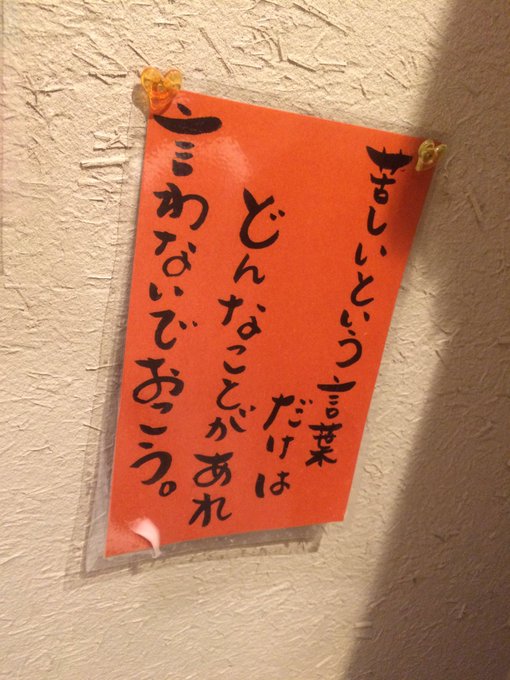 苦しいという言葉
だけは
どんなことがあれ
言わないでおこう。